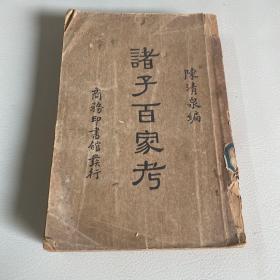 陳清泉編
諸子百家考
商務印書館發行